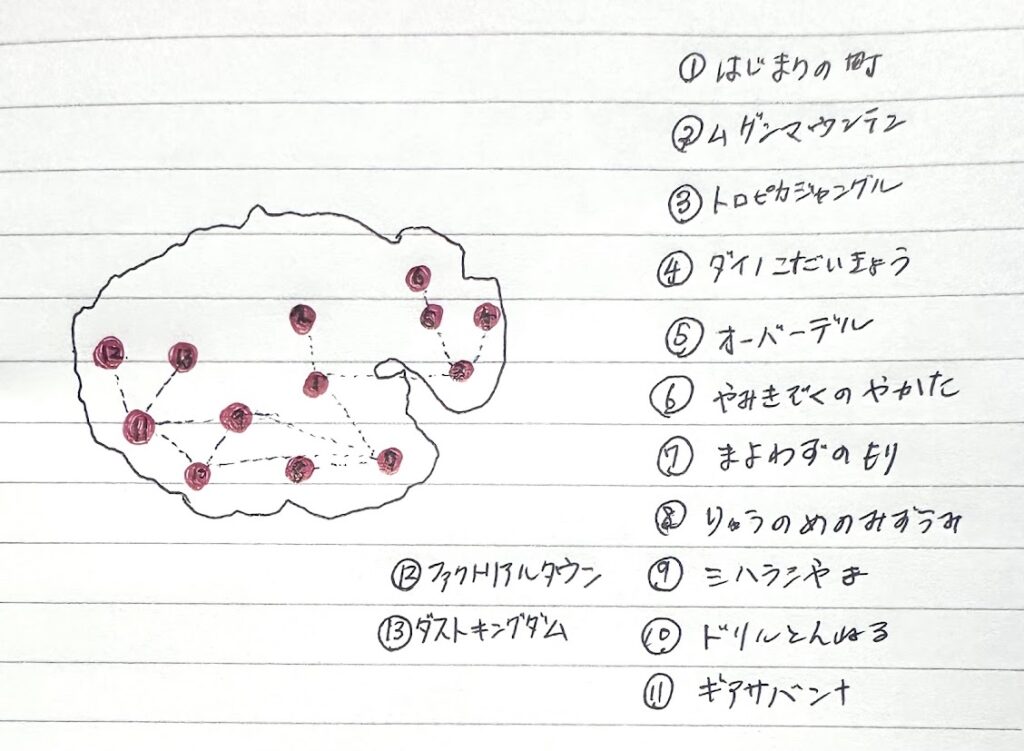 ①はじまりの町
②ムゲンマウンテン
③トロピカジャングル
④ダイノこだいきょう
⑤オーバーデル
⑥やみきぞくのやかた
⑦まよわずのもり
⑧りゅうのめのみずうみ
⑨ミハラシやま
⑩ドリルとんねる
⑪ギアサバンナ
⑫ファクトリアルタウン
⑬ダストキングダム
6
5
12
13
1
3
11
9
10
8
7